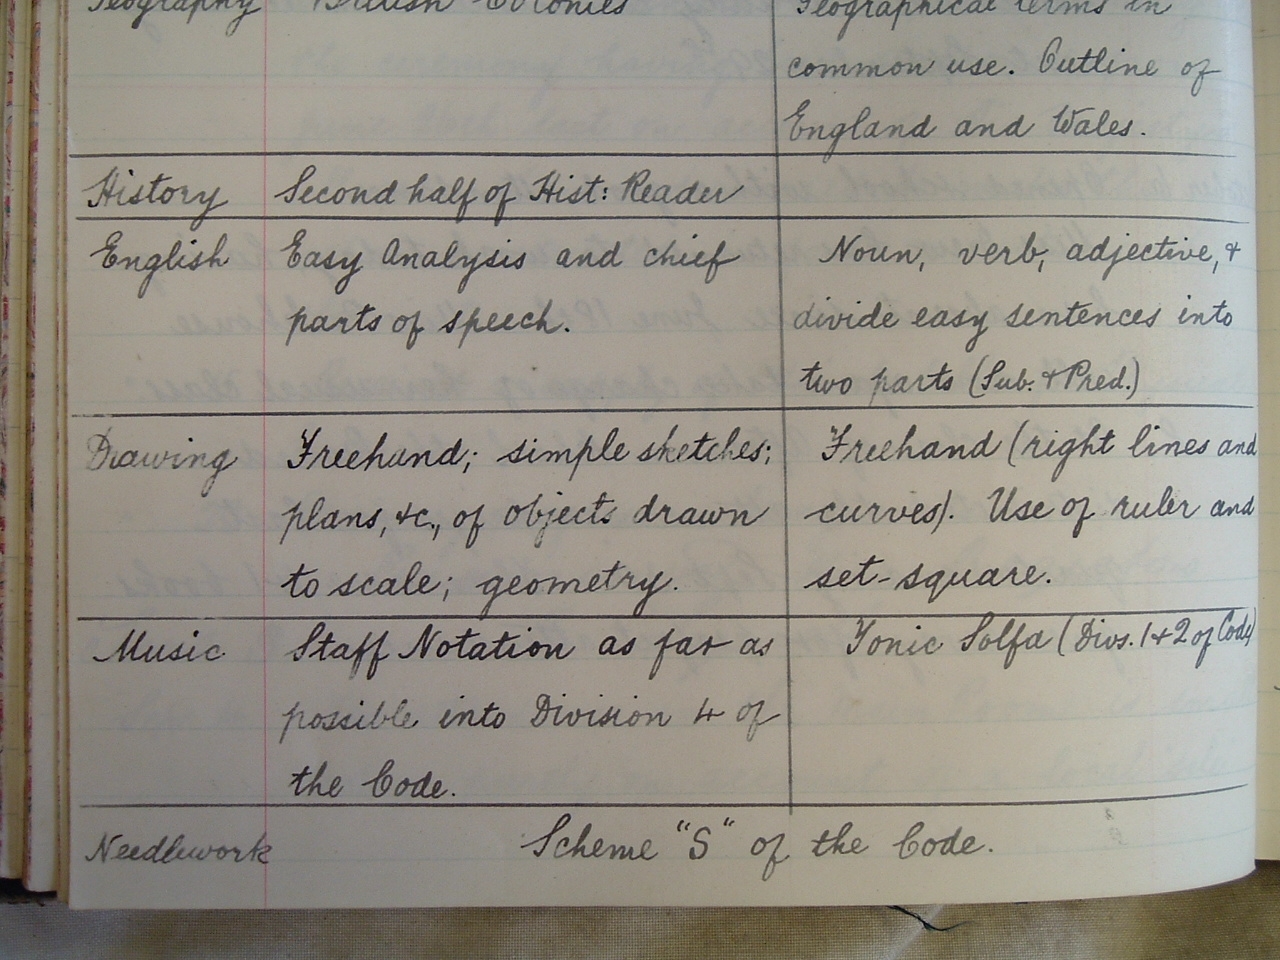 Geography British Colonies Geographical terms in
common use. Outline of
England and Wales.
History Second half of Hist: Reader
English Easy Analysis and chief Noun, verb, adjective, &
parts of speech. divide easy sentences into
two parts (Sub. & Pred.)
Drawing Freehand; simple sketches; Freehand (right lines and
plans, &c., of objects drawn curves). Use of ruler and
to scale; geometry. set-square.
Music Staff Notation as far as Tonic Solfa (Divs. 1 & 2 of Code)
possible into Division 4 of
the Code.
Needlework Scheme "S" of the Code.